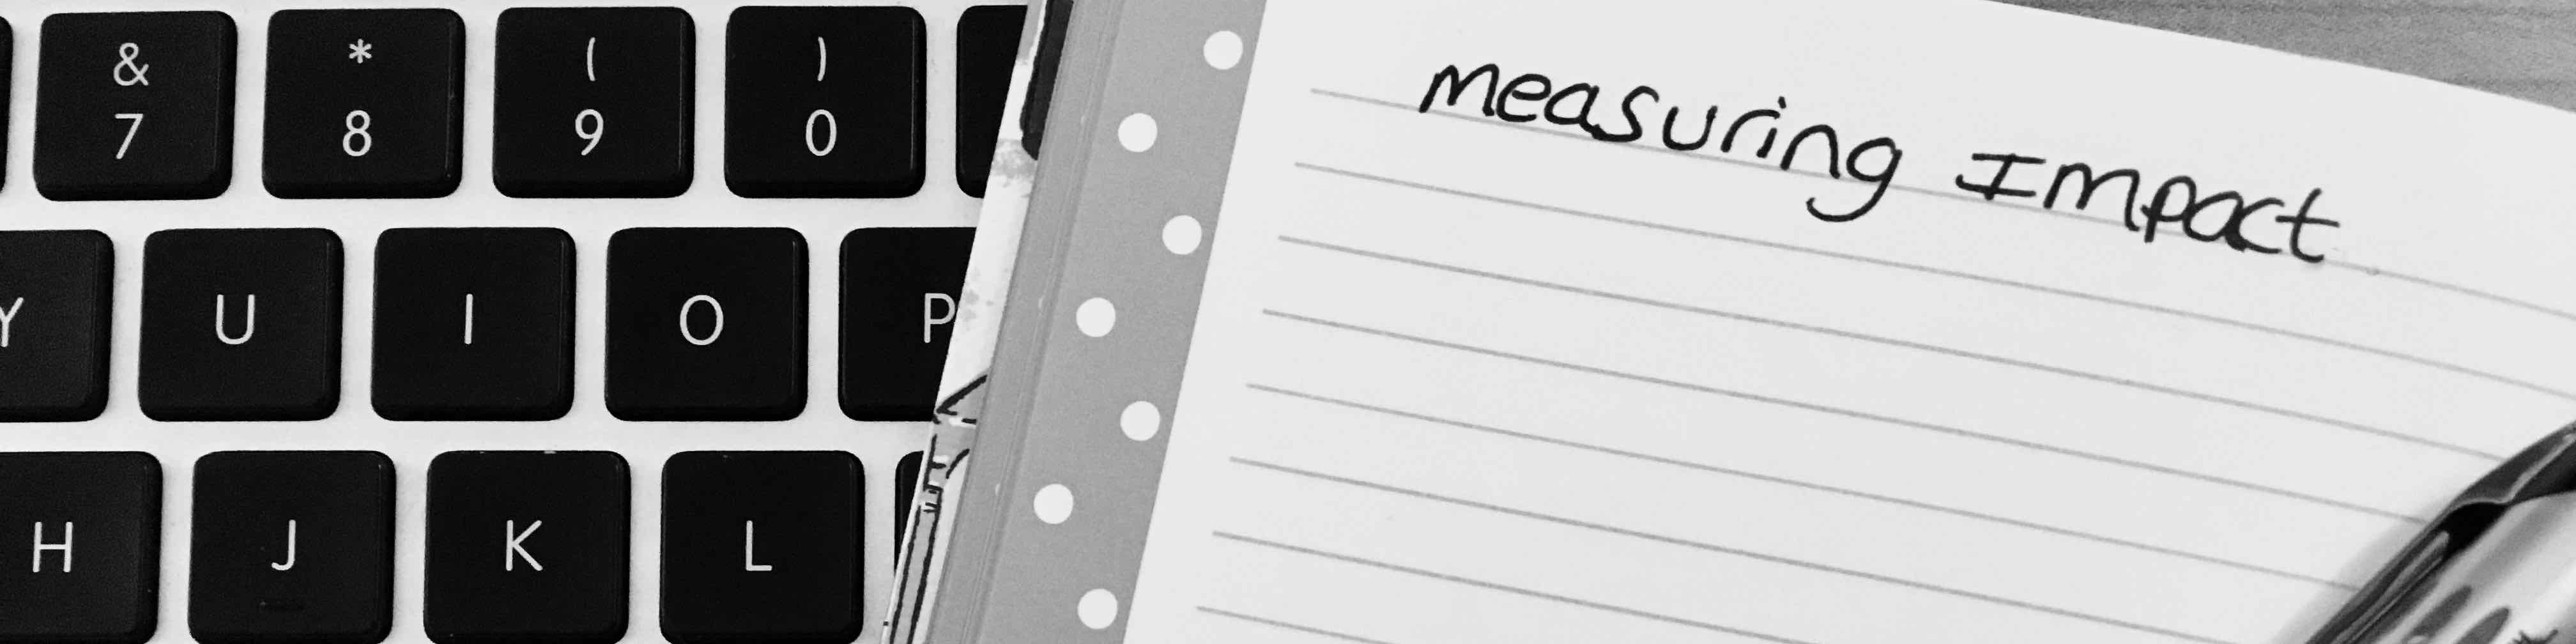 & * ( )
7 8 9 0
Y U I O P
H J K L
measuring Impact